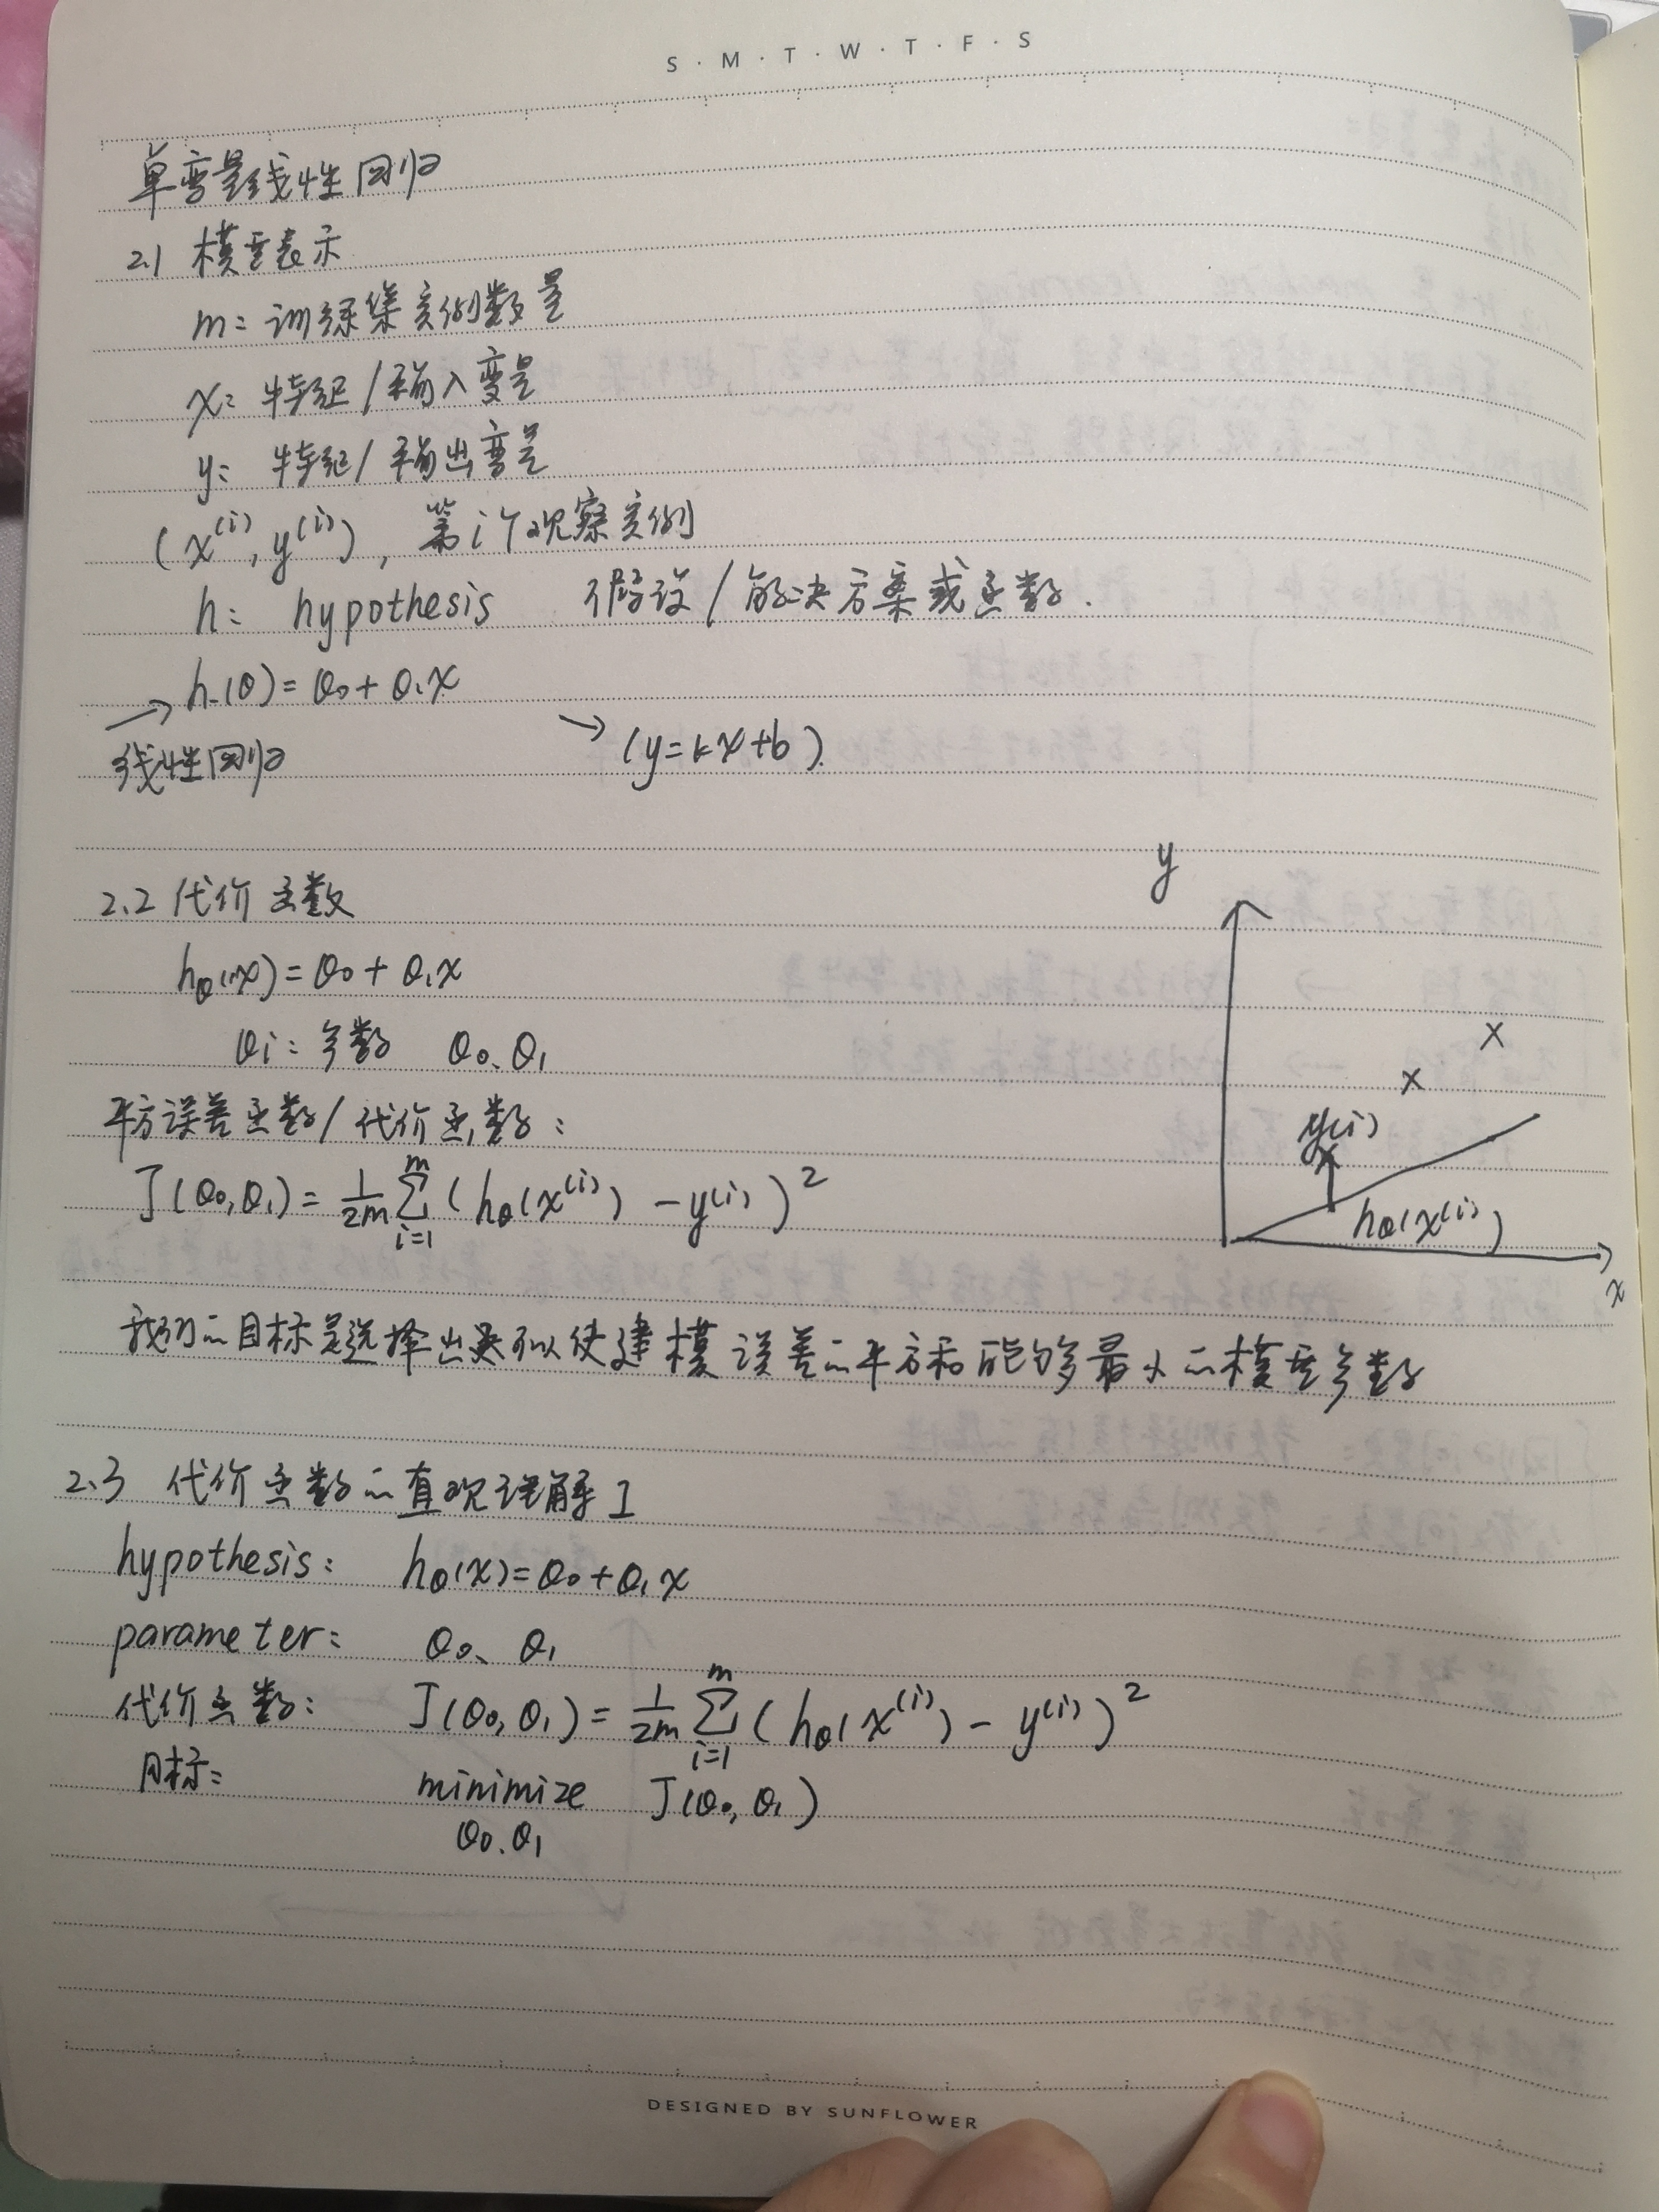 S · M · T · W · T · F · S
单变量线性回归
2.1 模型表示
m: 训练集实例数量
x: 特征/输入变量
y: 特征/输出变量
(x⁽ⁱ⁾, y⁽ⁱ⁾), 第i个观察实例
h: hypothesis 假设/解决方案或函数.
→ h(θ)=θ₀+θ₁x
线性回归 → (y=kx+b)
2.2 代价函数
hθ(x)=θ₀+θ₁x
θi: 参数 θ₀、θ₁
平方误差函数/代价函数:
J(θ₀,θ₁)=1/2m ∑ᵢ₌₁ᵐ (hθ(x⁽ⁱ⁾) - y⁽ⁱ⁾)²
y
y(i)
hθ(x⁽ⁱ⁾)
x
我们的目标是选择出可以使建模误差的平方和能够最小的模型参数
2.3 代价函数的直观理解I
hypothesis: hθ(x)=θ₀+θ₁x
parameter: θ₀、θ₁
代价函数: J(θ₀,θ₁)=1/2m ∑ᵢ₌₁ᵐ (hθ(x⁽ⁱ⁾) - y⁽ⁱ⁾)²
目标: minimize J(θ₀,θ₁)
θ₀.θ₁
DESIGNED BY SUNFLOWER